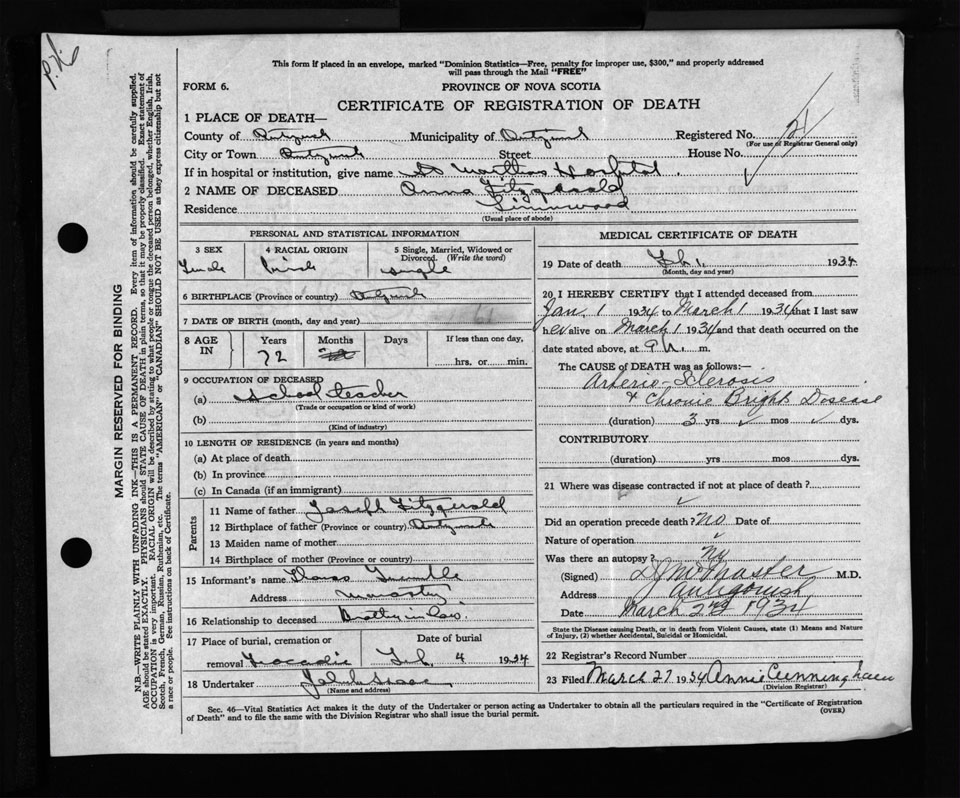 P.N.
This form if placed in an envelope, marked "Dominion Statistics—Free, penalty for improper use, $300," and properly addressed
will pass through the Mail "FREE"
FORM 6. PROVINCE OF NOVA SCOTIA
CERTIFICATE OF REGISTRATION OF DEATH
1 PLACE OF DEATH—
County of Municipality of Registered No. 21
(For use of Registrar General only)
City or Town Street House No.
If in hospital or institution, give name St Marthas Hospital.
2 NAME OF DECEASED Anna Fitzgerald
Residence Linwood
(Usual place of abode)
PERSONAL AND STATISTICAL INFORMATION
3 SEX 4 RACIAL ORIGIN 5 Single, Married, Widowed or
Divorced. (Write the word)
Female Irish single
6 BIRTHPLACE (Province or country)
7 DATE OF BIRTH (month, day and year) 61
8 AGE IN Years Months Days If less than one day,
72 hrs. or min.
9 OCCUPATION OF DECEASED
(a) School teacher
(Trade or occupation or kind of work)
(b)
(Kind of industry)
10 LENGTH OF RESIDENCE (in years and months)
(a) At place of death
(b) In province
(c) In Canada (if an immigrant)
Parents
11 Name of father Joseph Fitzgerald
12 Birthplace of father (Province or country)
13 Maiden name of mother
14 Birthplace of mother (Province or country)
15 Informant's name Thomas
Address Monastery
16 Relationship to deceased Brother in law
17 Place of burial, cremation or Date of burial
removal Tracadie Feb. 4 1934
18 Undertaker
(Name and address)
MEDICAL CERTIFICATE OF DEATH
19 Date of death Feb. 1, 1934
(Month, day and year)
20 I HEREBY CERTIFY that I attended deceased from
Jan 1 1934 to March 1 1934 that I last saw
her alive on March 1 1934 and that death occurred on the
date stated above, at m.
The CAUSE OF DEATH was as follows:—
Arterio-Sclerosis
& Chronic Brights Dosease
(duration) 3 yrs mos dys.
CONTRIBUTORY
(duration) yrs mos dys.
21 Where was disease contracted if not at place of death?
Did an operation precede death? No Date of
Nature of operation
Was there an autopsy? No
(Signed) M.D.
Address Antigonish
Date March 2nd 1934
State the Disease causing Death, or in death from Violent Causes, state (1) Means and Nature
of Injury, (2) whether Accidental, Suicidal or Homicidal.
22 Registrar's Record Number
23 Filed March 27 1934 Annie Cunningham
(Division Registrar)
Sec. 46—Vital Statistics Act makes it the duty of the Undertaker or person acting as Undertaker to obtain all the particulars required in the "Certificate of Registration
of Death" and to file the same with the Division Registrar who shall issue the burial permit.
(OVER)
MARGIN RESERVED FOR BINDING
N.B.—WRITE PLAINLY WITH UNFADING INK—THIS IS A PERMANENT RECORD. Every item of information should be carefully supplied.
AGE should be stated EXACTLY. PHYSICIANS should STATE CAUSE OF DEATH in plain terms, so that it may be properly classified. Exact statement of
OCCUPATION is very important. RACIAL ORIGIN will be described by stating to what people or tongue the deceased person belonged, whether English, Irish,
Scotch, French, German, Russian, Ruthenian, etc. The terms "AMERICAN" or "CANADIAN" SHOULD NOT BE USED as they express citizenship but not
a race or people. See instructions on back of Certificate.